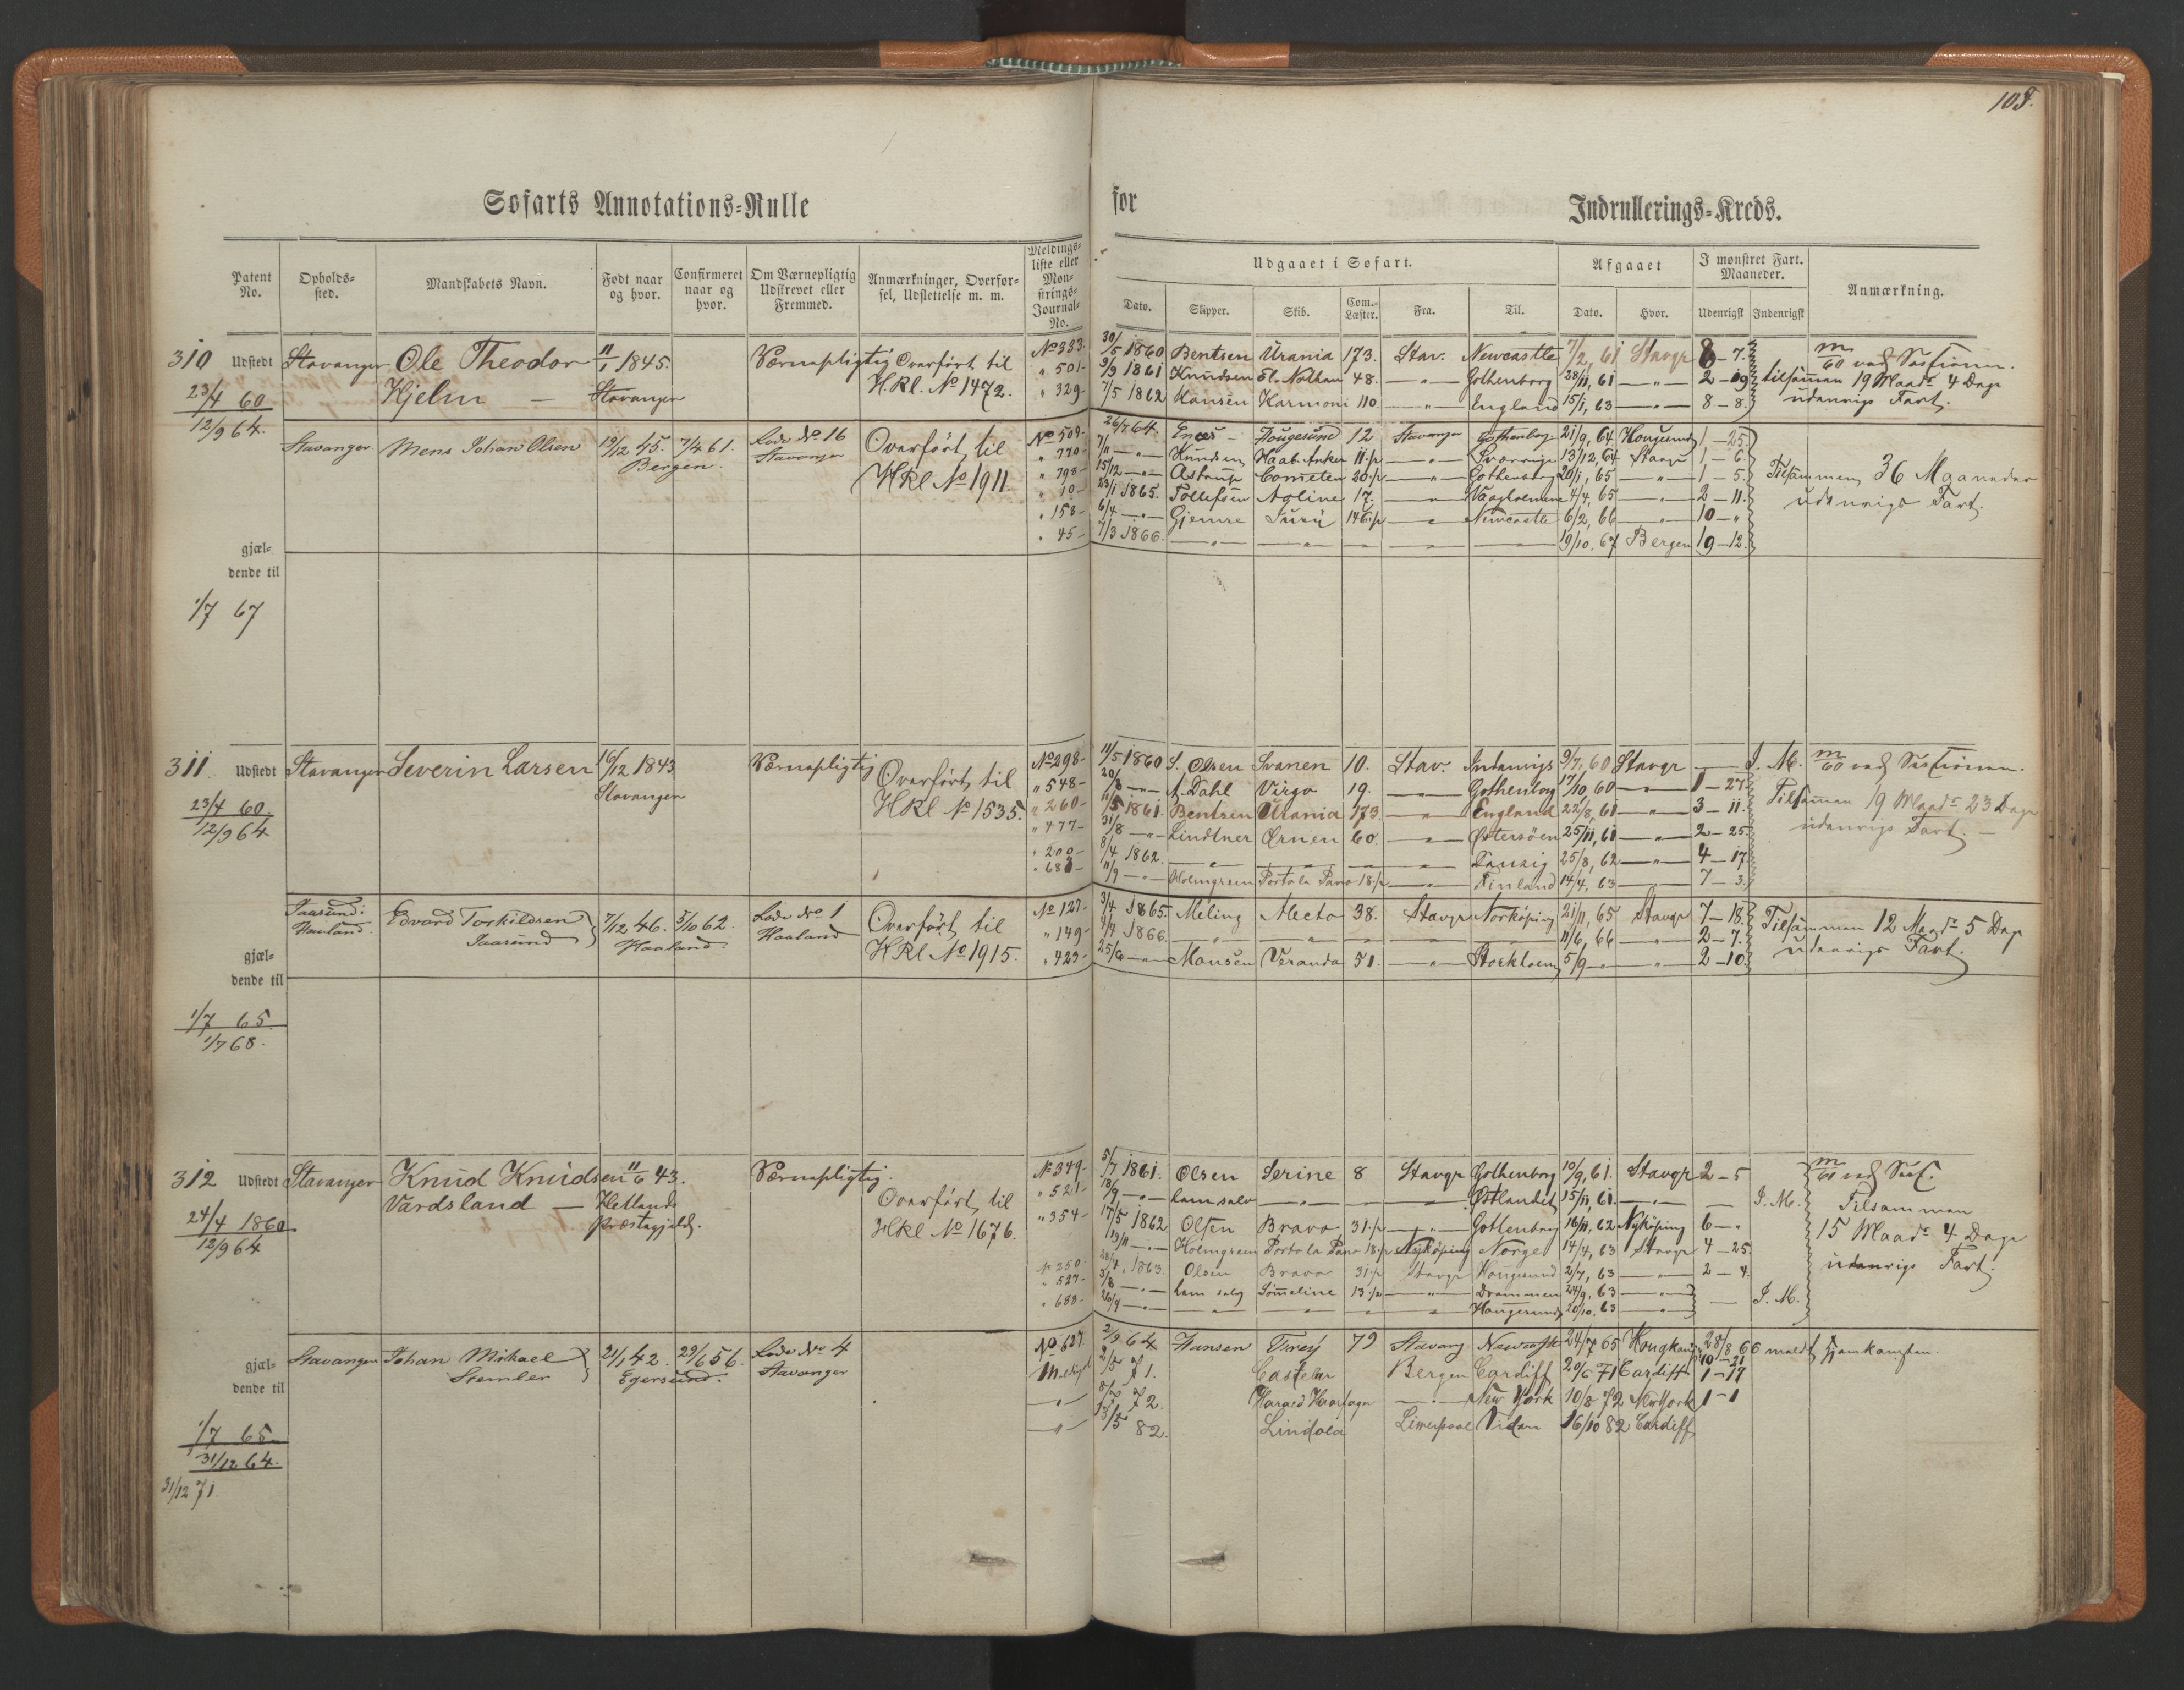 108.
Søfarts Annotations=Rulle for Indrullerings=Kreds.
Patent No. Opholds=sted. Mandskabets Navn. Født naar og hvor. Confirmeret naar og hvor. Om Værnepligtig Udskrevet eller Fremmed. Anmærkninger, Overfør=sel, Udslettelse m. m. Meldings=liste eller Mon=strings=Journal=No.
Udgaaet i Søfart. Afgaaet I mønstret Fart. Maaneder. Anmærkning.
Dato. Skipper. Skib. Com.=Læster. Fra. Til. Dato. Hvor. Udenrigsk Indenrigsk
310 Udstedt Stavanger Ole Theodor 11/1 1845. Værnepligtig Overført til No 333. 30/5 1860 Bentsen Urania 173. Stav. Newcastle 7/2, 61 Stavgr 8-7. m/60 ved Sessionen.
23/4 60 Hjelm — Stavanger H.Rl. No 1472. " 501- 9/9 1861 Knudsen El. Nathan 48. — " — Gothenborg 28/11, 61 — " — 2-19 tilsamman 19 Maadr 4 Dage
12/9 64. " 329- 7/5 1862 Hansen Harmoni 110. — " — England 15/1, 63 — " — 8-8. udenrigs Fart.
Stavanger Mens Johan Olsen 19/12 45. 7/4 61. Lode No 16 Overført til No 509- 26/7 64. Hougesund 12 Stavanger Gothenborg 21/9, 64 Hougesund 1-25.
Bergen. Stavanger HRl No 1911. " 770- 7/11 — " — Knudsen Haab. Anker 11 1/2 — " — Sverrige 13/12, 64 Stavgr 1-6.
" 798- 15/12 — " — Astrup Cometen 20 1/2 — " — Gothenborg 20/1, 65 — " — 1-5. Tilsammen 36 Maaneder
" 10- 23/1 1865. Tollefsen Agline 17. — " — 4/4, 65 — " — 2-11. udenrigs Fart.
" 158- 6/4 — " — Gjemre 146 1/2 — " — Newcastle 6/2, 66 — " — 10-"
" 45- 7/3 1866. — " — — " — — " — — " — 19/10, 67 Bergen 19-12.
gjæl=
dende til
1/7 67
311 Udstedt Stavanger Severin Larsen 16/12 1843 Værnepligtig Overført til No 298- 11/5 1860 S. Olsen Svanen 10. Stav. Indenrigs 9/7, 60 Stavgr — I. M. m/60 ved Sessionen.
Stavanger HRl No 1535. " 548- 20/8 — " — A. Dahl Virgo 19. — " — Gothenborg 17/10 60 — " — 1-27.
23/4 60. " 260- 11/5 1861. Bentsen Urania 173. — " — England 22/8, 61 — " — 3-11. Tilsamman 19 Maadr 23 Dage
12/9 64 " 477- 31/8 — " — Lindtner Ørnen 60. — " — Østersøen 25/11, 61 — " — 2-25. udenrigs Fart. —
" 200- 8/4 1862. — " — — " — Danzig 25/8, 62 — " — 4-17
" 688- 11/9 — " — Holmgreen Porto la Pano 18 1/2 — " — Finland 14/4, 63 — " — 7-3.
Taasund i Haaland. Edvard Torkildsen 7/12 46. 5/10 62. Lode No 1 Overført til No 127- 3/4 1865. Meling Alecto 38. Stavgr Norköping 21/11, 65 Stavgr 7-18. Tilsammen 12 Maadr 5 Dage
Taasund Haaland. Haaland HRl No 1915. " 149- 1/4 1866. — " — — " — — " — 11/6, 66 — " — 2-7. udenrigs Fart.
" 423- 25/6 — " — Monsen Veranda 51. — " — Stockholm 5/9 — " — " — 2-10.
gjæl=
dende til
1/7 65
1/7 68.
312 Udstedt Stavanger Knud Knudsen 11/6 43. Værnepligtig. Overført til No 349- 5/7 1861. Olsen Serine 8 Stavgr Gothenborg 10/9, 61. Stavgr 2-5 m/60 ved Sess.
Vardsland — Hetlands HRl No 1676. " 521- 18/9 — " — ham selv — " — — " — Østlandet 15/11, 61. — " — — I. M. Tilsammen
24/4 1860 Præstegjeld. " 354- 17/5 1862 Olsen Bravo 31 1/2 — " — Gothenborg 16/11, 62 Nykøping 6-" 15 Maadr 4 Dage
12/9 64 13/11 — " — Holmgreen Porto la Pano 18 1/2 Nykøping Norge 14/4, 63 Stavgr 4-25. udenrigs Fart.
No 250 28/4, 1863. Olsen Bravo 31 1/2 Stavgr Hougesund 2/7, 63 — " — 2-4.
" 527- 3/8 — " — ham selv 13 1/2 — " — Drammen 24/9, 63 — " —
" 683- 26/9 — " — — " — — " — Hougesund 20/10, 63 — " — — I. M.
gjæl=
dende til
Stavanger Johan Mikael 21/1 42. 29/6 56. Lode No 4 No 627. 2/9 64 Hansen 79 Stavang Newcastle 24/7 65 28/8 66 meldt hjemkommen.
Stemler Egersund. Stavanger 2/5 71. Castelar Bergen Cardiff 20/6 71 Cardiff 1-17
— " — 72. Harald Haarfagr — " — New York 10/8 72 NewYork 1-1
1/7 65 — " — 13/5 82. Lindola Liverpool 16/10 82 Cardiff
31/12 64.
31/12 71.